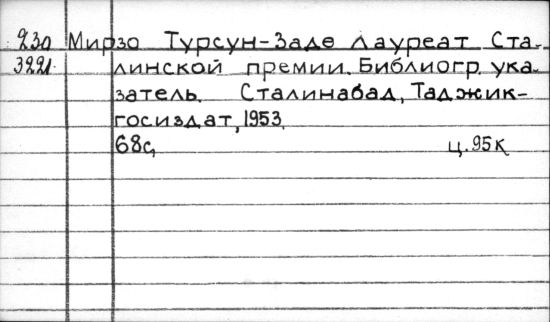 230 Мирзо Турсун-Заде лауреат Ста-
3221 линской премии. Библиогр. ука-
затель. Сталинабад, Таджик-
госиздат, 1953.
68с. ц. 95к